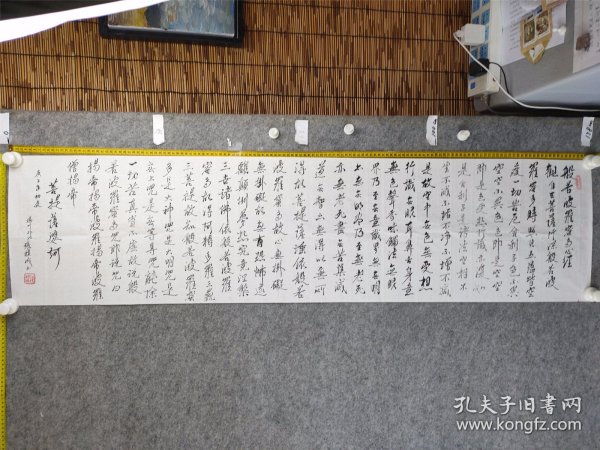 般若波罗蜜多心经
观自在菩萨行深般若波
罗蜜多时照见五蕴皆空
度一切苦厄舍利子色不异
空空不异色色即是空空
即是色受想行识亦复如
是舍利子是诸法空相不
生不灭不垢不净不增不减
是故空中無色無受想
行识無眼耳鼻舌身意
無色声香味触法無眼
界乃至無意识界無無明
亦無無明尽乃至無老死
亦無老死尽無苦集灭
道無智亦無得以無所
得故菩提萨埵依般若
波罗蜜多故心無挂碍
無挂碍故無有恐怖远
离颠倒梦想究竟涅槃
三世诸佛依般若波罗
蜜多故得阿耨多罗三藐
三菩提故知般若波罗蜜
多是大神咒是大明咒是
無上咒是無等等咒能除
一切苦真实不虚故说般
若波罗蜜多咒即说咒曰
揭帝揭帝波罗揭帝波罗
僧揭帝
菩提萨婆诃
孔夫子旧书网
www.kongfz.com